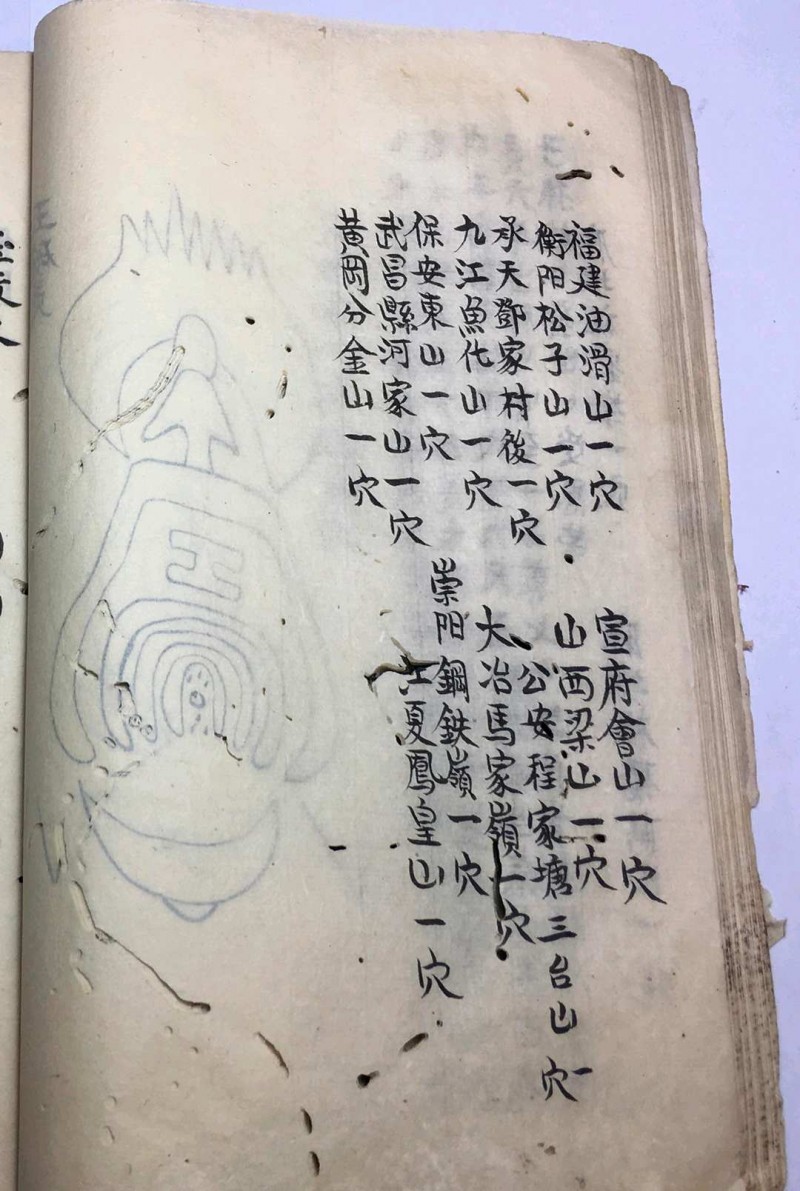 福建油滑山一穴
衡阳松子山一穴
承天鄧家村後一穴
九江魚化山一穴
保安東山一穴
武昌縣河家山一穴
黄岡分金山一穴
宣府會山一穴
山西梁山一穴
公安程家塘三台山一穴
大冶馬家嶺一穴
崇阳鋼鉄嶺一穴
江夏鳳皇山一穴